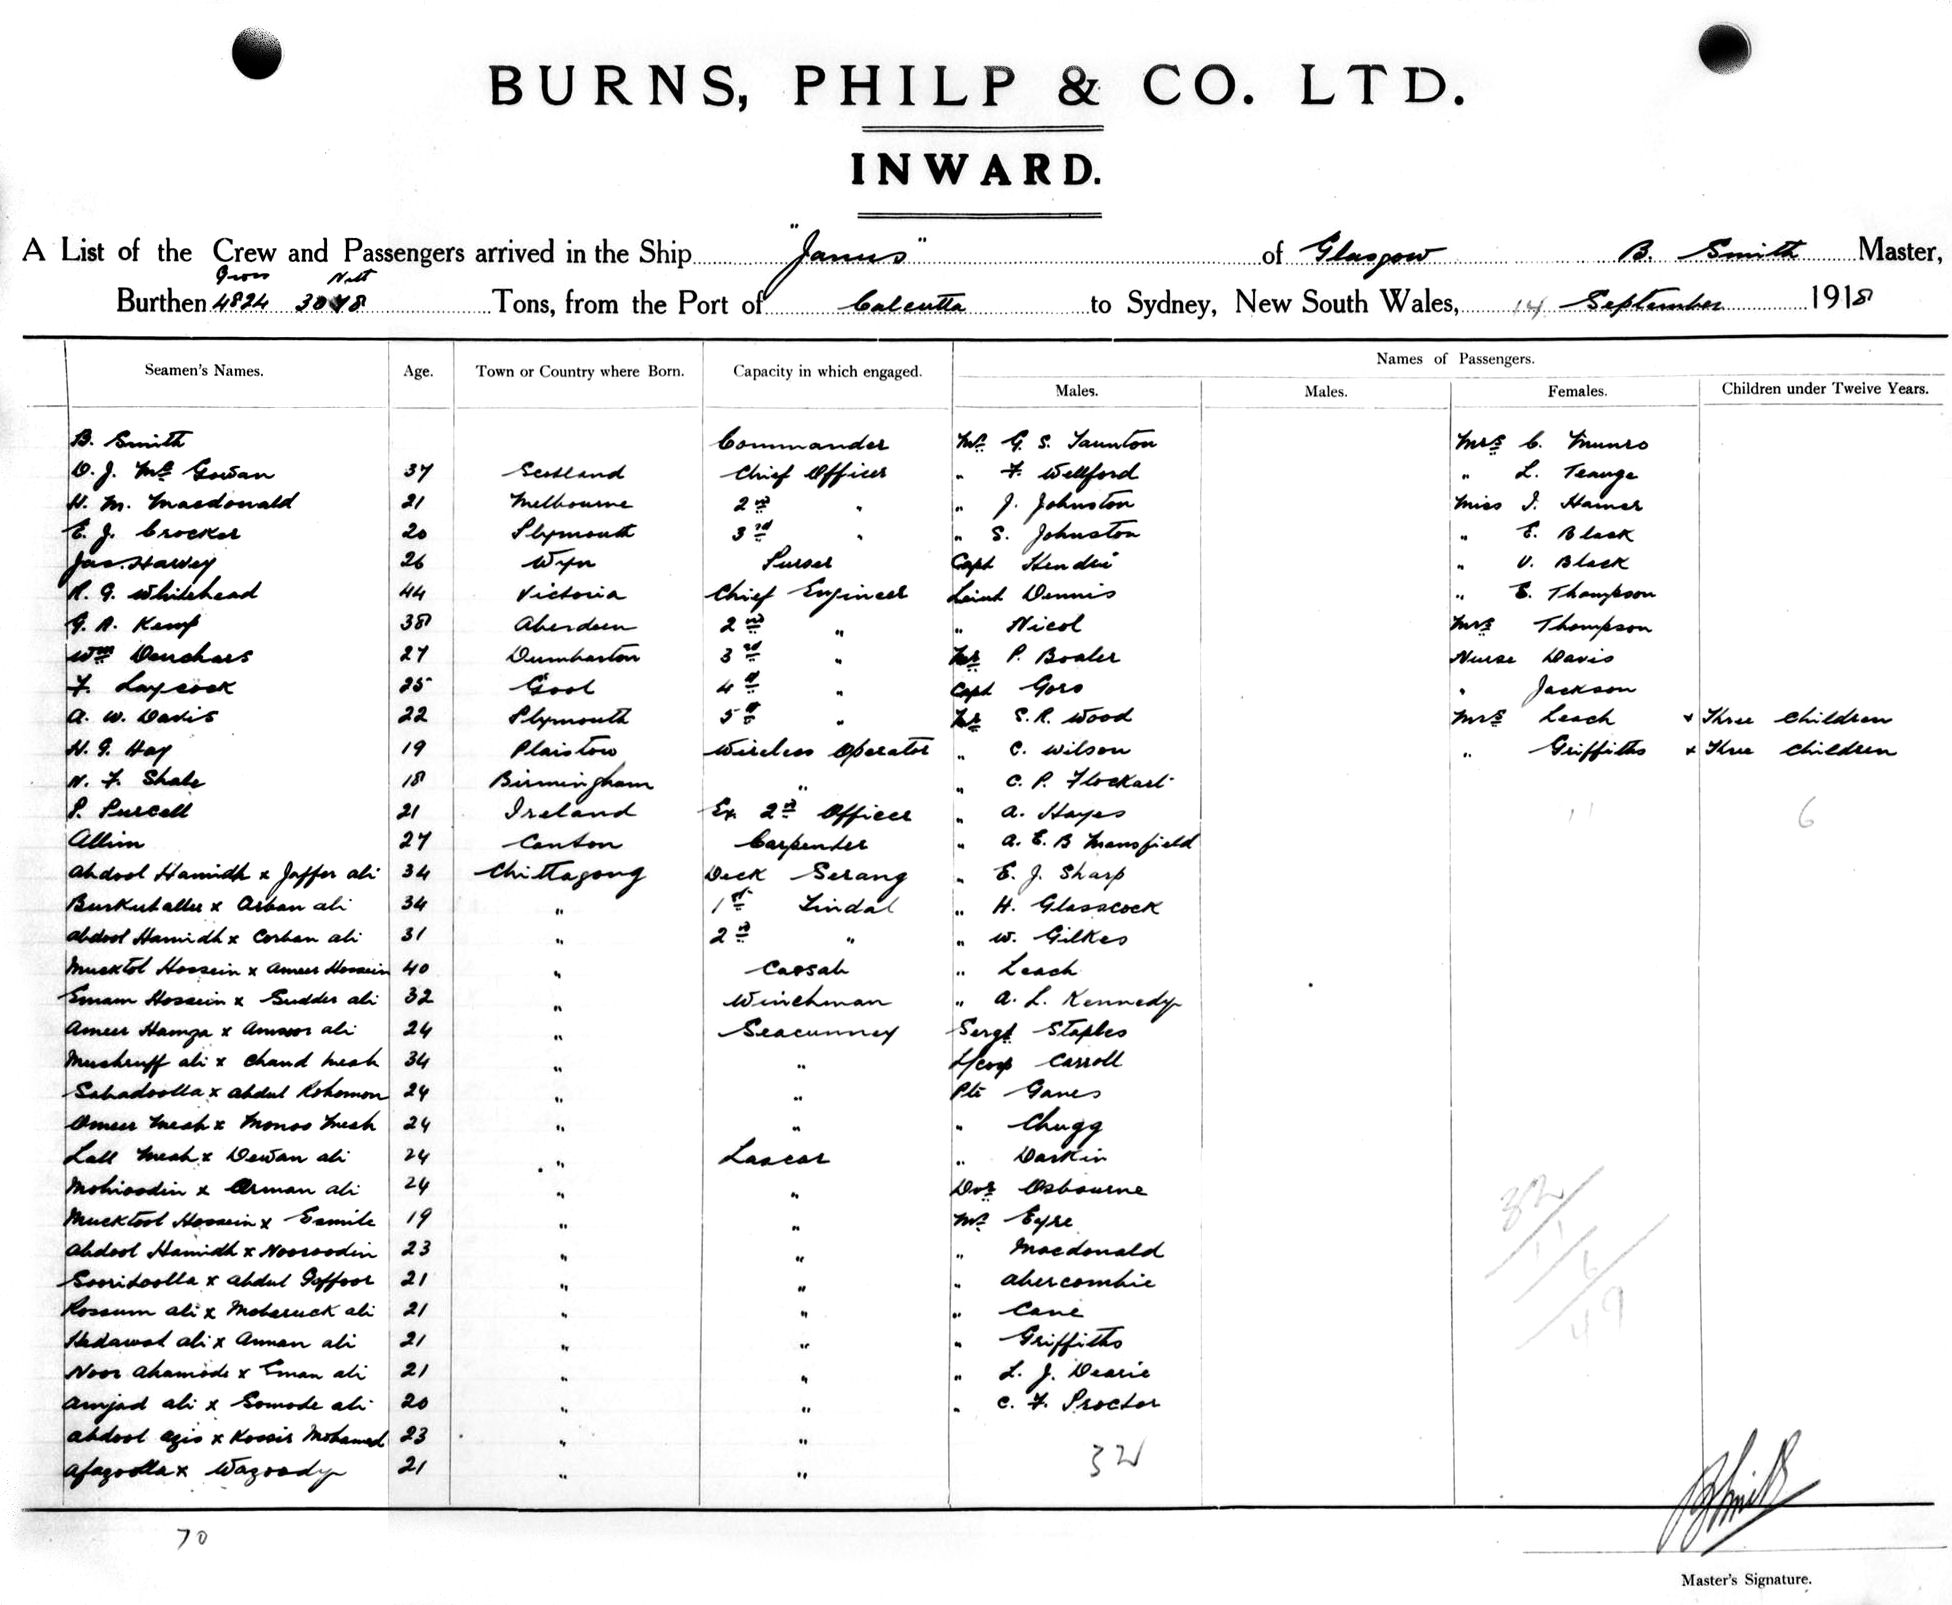 BURNS, PHILP & CO. LTD.
INWARD.
A List of the Crew and Passengers arrived in the Ship "Janus" of Glasgow B. Smith Master,
Gross Nett
Burthen 4824 Tons, from the Port of Calcutta to Sydney, New South Wales, 14 September 1918
Names of Passengers.
Seamen's Names. Age. Town or Country where Born. Capacity in which engaged. Males. Males. Females. Children under Twelve Years.
B. Smith Commander Mr G. S. Taunton Mrs C. Munro
D. J. McGowan 37 Scotland Chief Officer " F. Wellford " L. Teange
H. M. Macdonald 21 Melbourne 2nd " " J. Johnston Miss I. Hamer
E. J. Crocker 20 Plymouth 3rd " " S. Johnston " E. Black
Jas. Harvey 26 Purser Capt Hendrie " V. Black
R. G. Whitehead 44 Victoria Chief Engineer Lieut Dennis " E. Thompson
G. A. Kemp 38 Aberdeen 2nd " " Nicol Mrs Thompson
Wm Deuchars 27 Dumbarton 3rd " Mr P. Boaler Nurse Davis
F. Laycock 25 Gool 4th " Capt Goro " Jackson
A. W. Davis 22 Plymouth 5th " Mr S. R. Wood Mrs Leach & Three Children
H. G. Hay 19 Plaistow Wireless Operator " C. Wilson " Griffiths & Three Children
N. F. Shale 18 Birmingham " " C. P. Flockart
P. Purcell 21 Ireland Ex. 2nd Officer " A. Hayes 11 6
Allim 27 Canton Carpenter " A. E. B Mansfield
Abdool Hamidh x Jaffer Ali 34 Chittagong Deck Serang " E. J. Sharp
Burkutallee x Arban Ali 34 " 1st Tindal " H. Glasscock
Abdool Hamidh x Corban Ali 31 " 2nd " " W. Gilkes
Mucktol Hossein x Ameer Hossein 40 " Cassab " Leach
Emam Hossein x Sudder Ali 32 " Winchman " A. L. Kennedy
Ameer Hamza x Amoor Ali 24 " Seacunney Sergt Staples
Mushruff Ali x Chand Meah 34 " " L/Corp Carroll
Sahadoolla x Abdul Rohomon 24 " " Pte Ganes
Omeer Meah x Monoo Meah 24 " " " Chugg
Lall Meah x Dewan Ali 24 " Lascar " Darkin
Mohioodin x Orman Ali 24 " " Dvr Osbourne
Mucktool Hossein x Esmile 19 " " Mr Eyre
Abdool Hamidh x Nooroodin 23 " " " Macdonald
Sooridoolla x Abdul Goffoor 21 " " " Abercombie
Rossum Ali x Moberuck Ali 21 " " " Cane
Hedawot Ali x Annan Ali 21 " " " Griffiths
Noor Ahamode x Eman Ali 21 " " " L. J. Dearie
Amjad Ali x Somode Ali 20 " " " C. F. Proctor
Abdool Azis x Kossir Mohamed 23 " "
Afazoolla x Wazoody 21 " "
32
32
11
6
49
70
B Smith
Master's Signature.